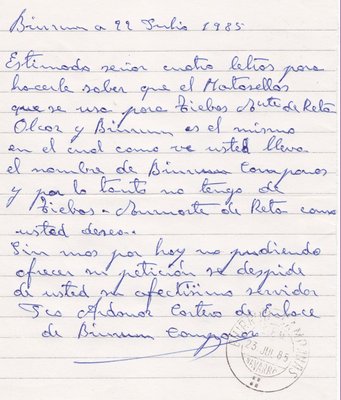 Biurrun a 22 Julio 1985
Estimado señor cuatro letras para
hacerle saber que el Matosellos
que se usa para Tiebas Mute de Reta
Olcoz y Biurrun es el mismo
en el cual como ve usted lleva
el nombre de Biurrun Campanas
y por lo tanto no tengo de
Tiebas - Muruarte de Reta como
usted desea.
Sin mas por hoy no pudiendo
ofrecer su petición se despide
de usted su afectísimo servidor
Fco Cartero de Enlace
de Biurrun Campanas
23 JUL 85